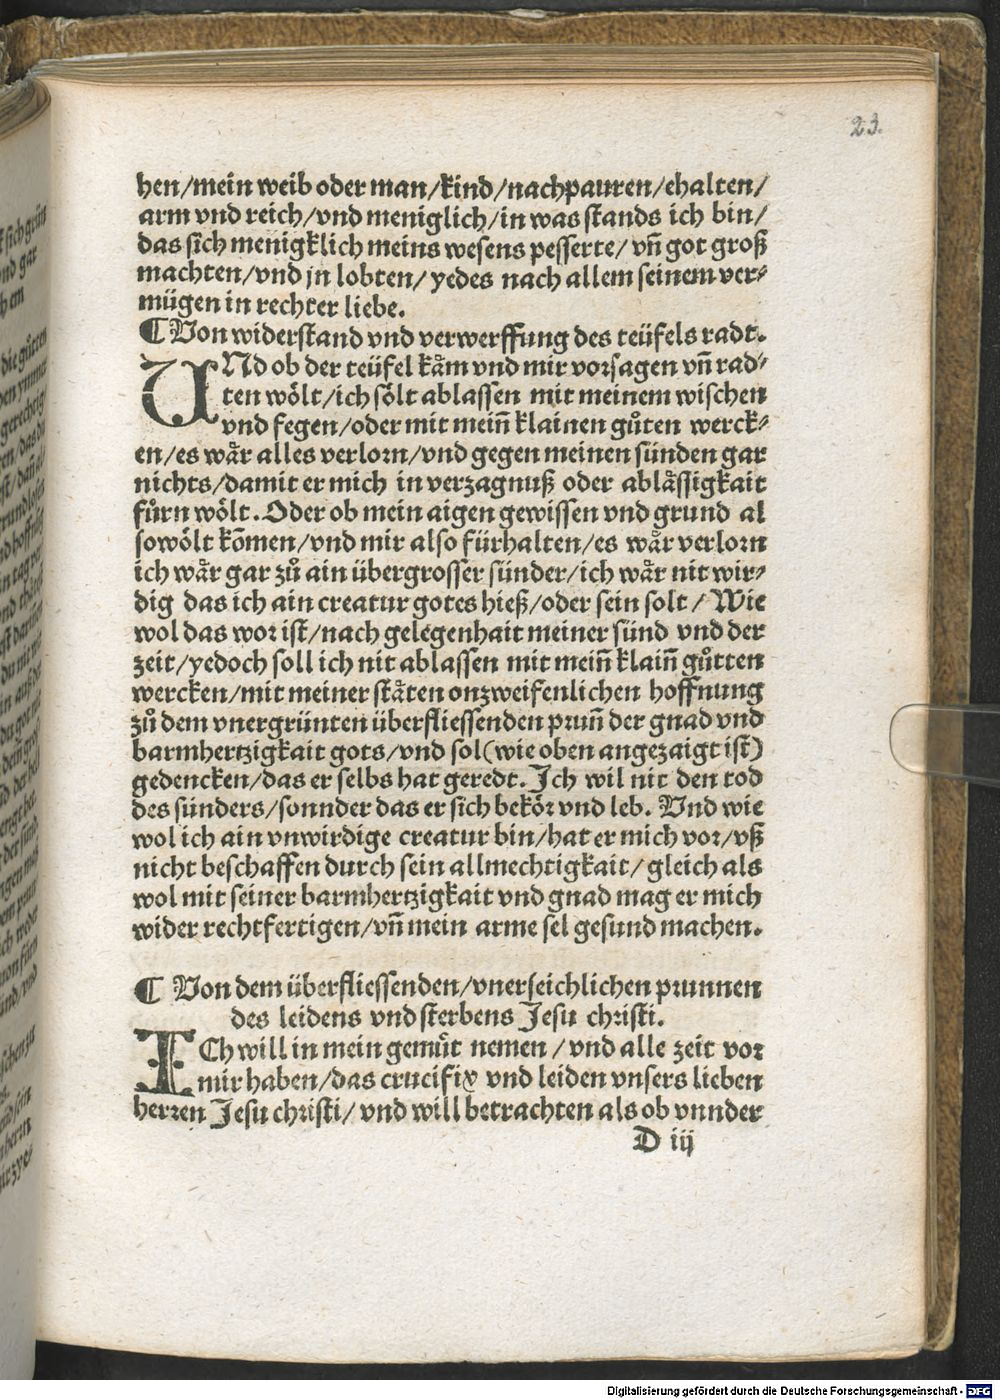 23.
hen/mein weib oder man/kind/nachpauren/ehalten/
arm vnd reich/vnd meniglich/in was stands ich bin/
das sich menigklich meins wesens pesserte/ vñ got groß
machten/vnd jn lobten/ yedes nach allem seinem ver⸗
mügen in rechter liebe.
¶ Von widerstand vnd verwerffung des teüfels radt.
UNd ob der teüfel kåm vnd mir vorsagen vñ rad⸗
ten wölt/ich sölt ablassen mit meinem wischen
vnd fegen/oder mit meiñ klainen gůten werck⸗
en/es wår alles verlorn/vnd gegen meinen sünden gar
nichts/damit er mich in verzagnuß oder ablåssigkait
fůrn wölt. Oder ob mein aigen gewissen vnd grund al
sowölt kõmen/vnd mir also fürhalten/es wår verlorn
ich wår gar zů ain übergrosser sünder/ich wår nit wir⸗
dig das ich ain creatur gotes hieß/oder sein solt/ Wie
wol das wor ist/nach gelegenhait meiner sünd vnd der
zeit/yedoch soll ich nit ablassen mit meiñ klaiñ gůtten
wercken/mit meiner ståten onzweifenlichen hoffnung
zů dem vnergrünten überfliessenden pruñ der gnad vnd
barmhertzigkait gots/vnd sol(wie oben angezaigt ist)
gedencken/das er selbs hat geredt. Ich wil nit den tod
des sünders/sonnder das er sich bekör vnd leb. Vnd wie
wol ich ain vnwirdige creatur bin/hat er mich vor/vß
nicht beschaffen durch sein allmechtigkait/gleich als
wol mit seiner barmhertzigkait vnd gnad mag er mich
wider rechtfertigen/vñ mein arme sel gesund machen.
¶ Von dem überfliessenden/vnerseichlichen prunnen
des leidens vnd sterbens Jesu christi.
ICh will in mein gemüt nemen/vnd alle zeit vor
mir haben/das crucifix vnd leiden vnsers lieben
herren Jesu christi/ vnd will betrachten als ob vnnder
D iij
Digitalisierung gefördert durch die Deutsche Forschungsgemeinschaft - DFG